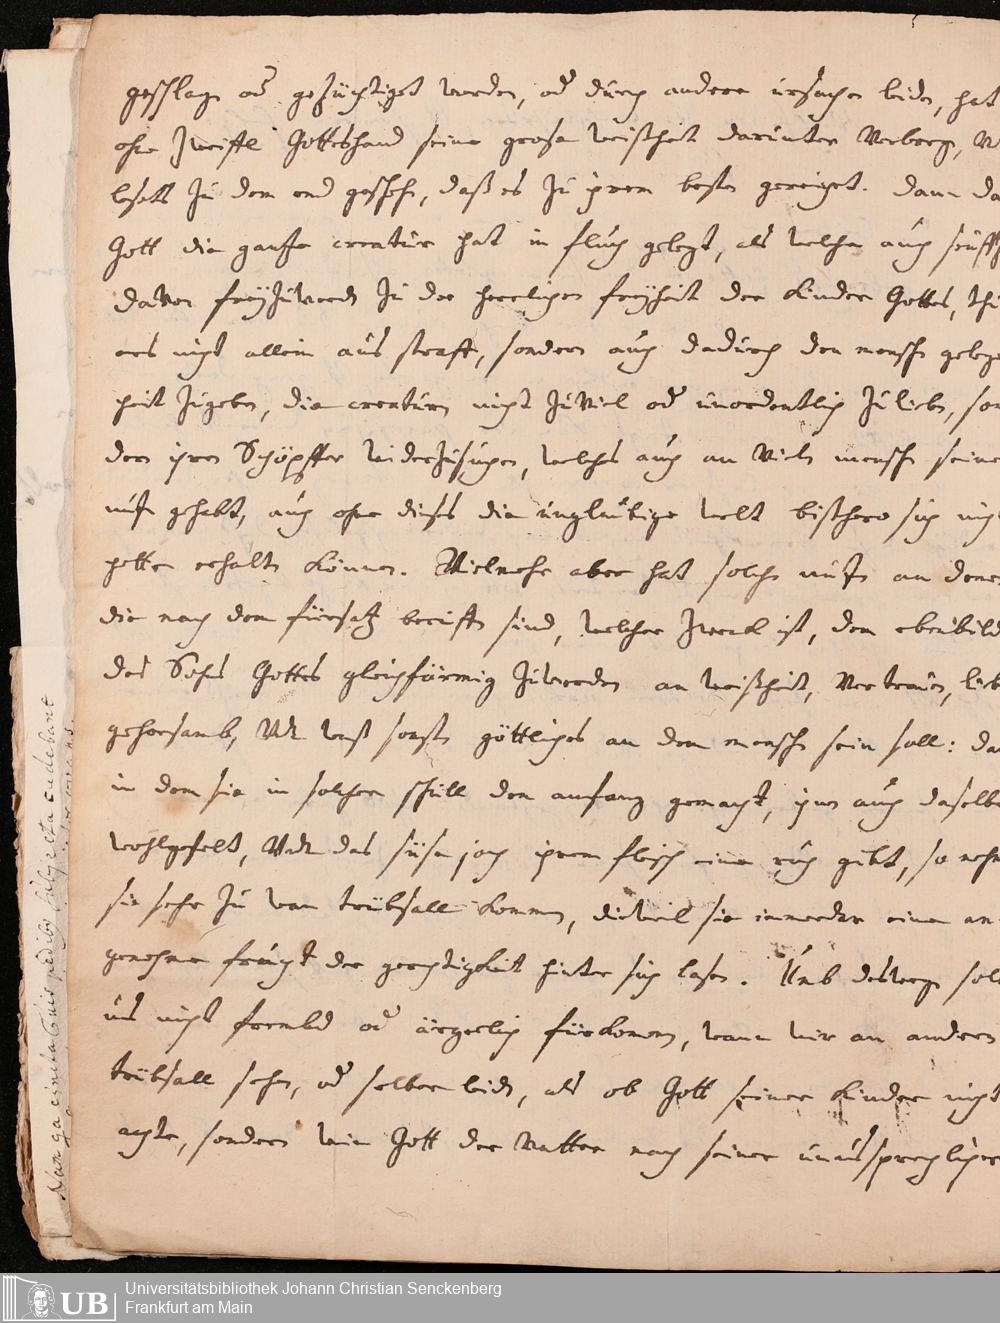 geschlagen od gezüchtiget werden, od durch andere ursachen leiden, hat
ohne Zweiffel Gottes hand seine grose weißheit darunter verborgen,
zu dem end geschehen, daß es zu ihrem besten gereichet. dann da
Gott die gantze creatur hat in fluch gelegt, als welche auch
davon frey zu werden zu der herrlichen freyheit der kinder Gottes,
ers nicht allein aus straff, sondern auch dadurch den menschen gelegen
heit zugeben, die creaturen nicht zu viel od unordentlich zu lieben, son
dern ihren Schöpffer wider zusuchen, welches auch an vielen menschen seinen
nutzen gehabt, auch ohne dieses die unglaubige welt bißhero sich nicht
hette erhalten können. Vielmehr aber hat solches nutzen an denen
die nach dem fürsatz beruffen sind, welcher zweck ist, dem ebenbild
des Sohns Gottes gleichförmig zuwerden an weißheit, vertrauen, lieb
gehorsamb, Und was sonsten göttliches an dem menschen sein soll:
in dem sie in solcher schull den anfang gemacht, ihnen auch daselbe
wohlgefelt, Und das süse joch ihrem fleisch eine ruh gibt, so
sie sehr zu wan trübsall kommen, dieweil sie immerdar eine an
genehme frucht der gerechtigkeit hinter sich lasen. Umb deswegen sol
uns nicht frembd od ärgerlich fürkommen, wann wir an andern
trübsall sehen, od selber leiden, als ob Gott seiner kinder nicht
achte, sondern wie Gott der Vatter nach seiner unaussprechlichen
Universitätsbibliothek Johann Christian Senckenberg
Frankfurt am Main
UB